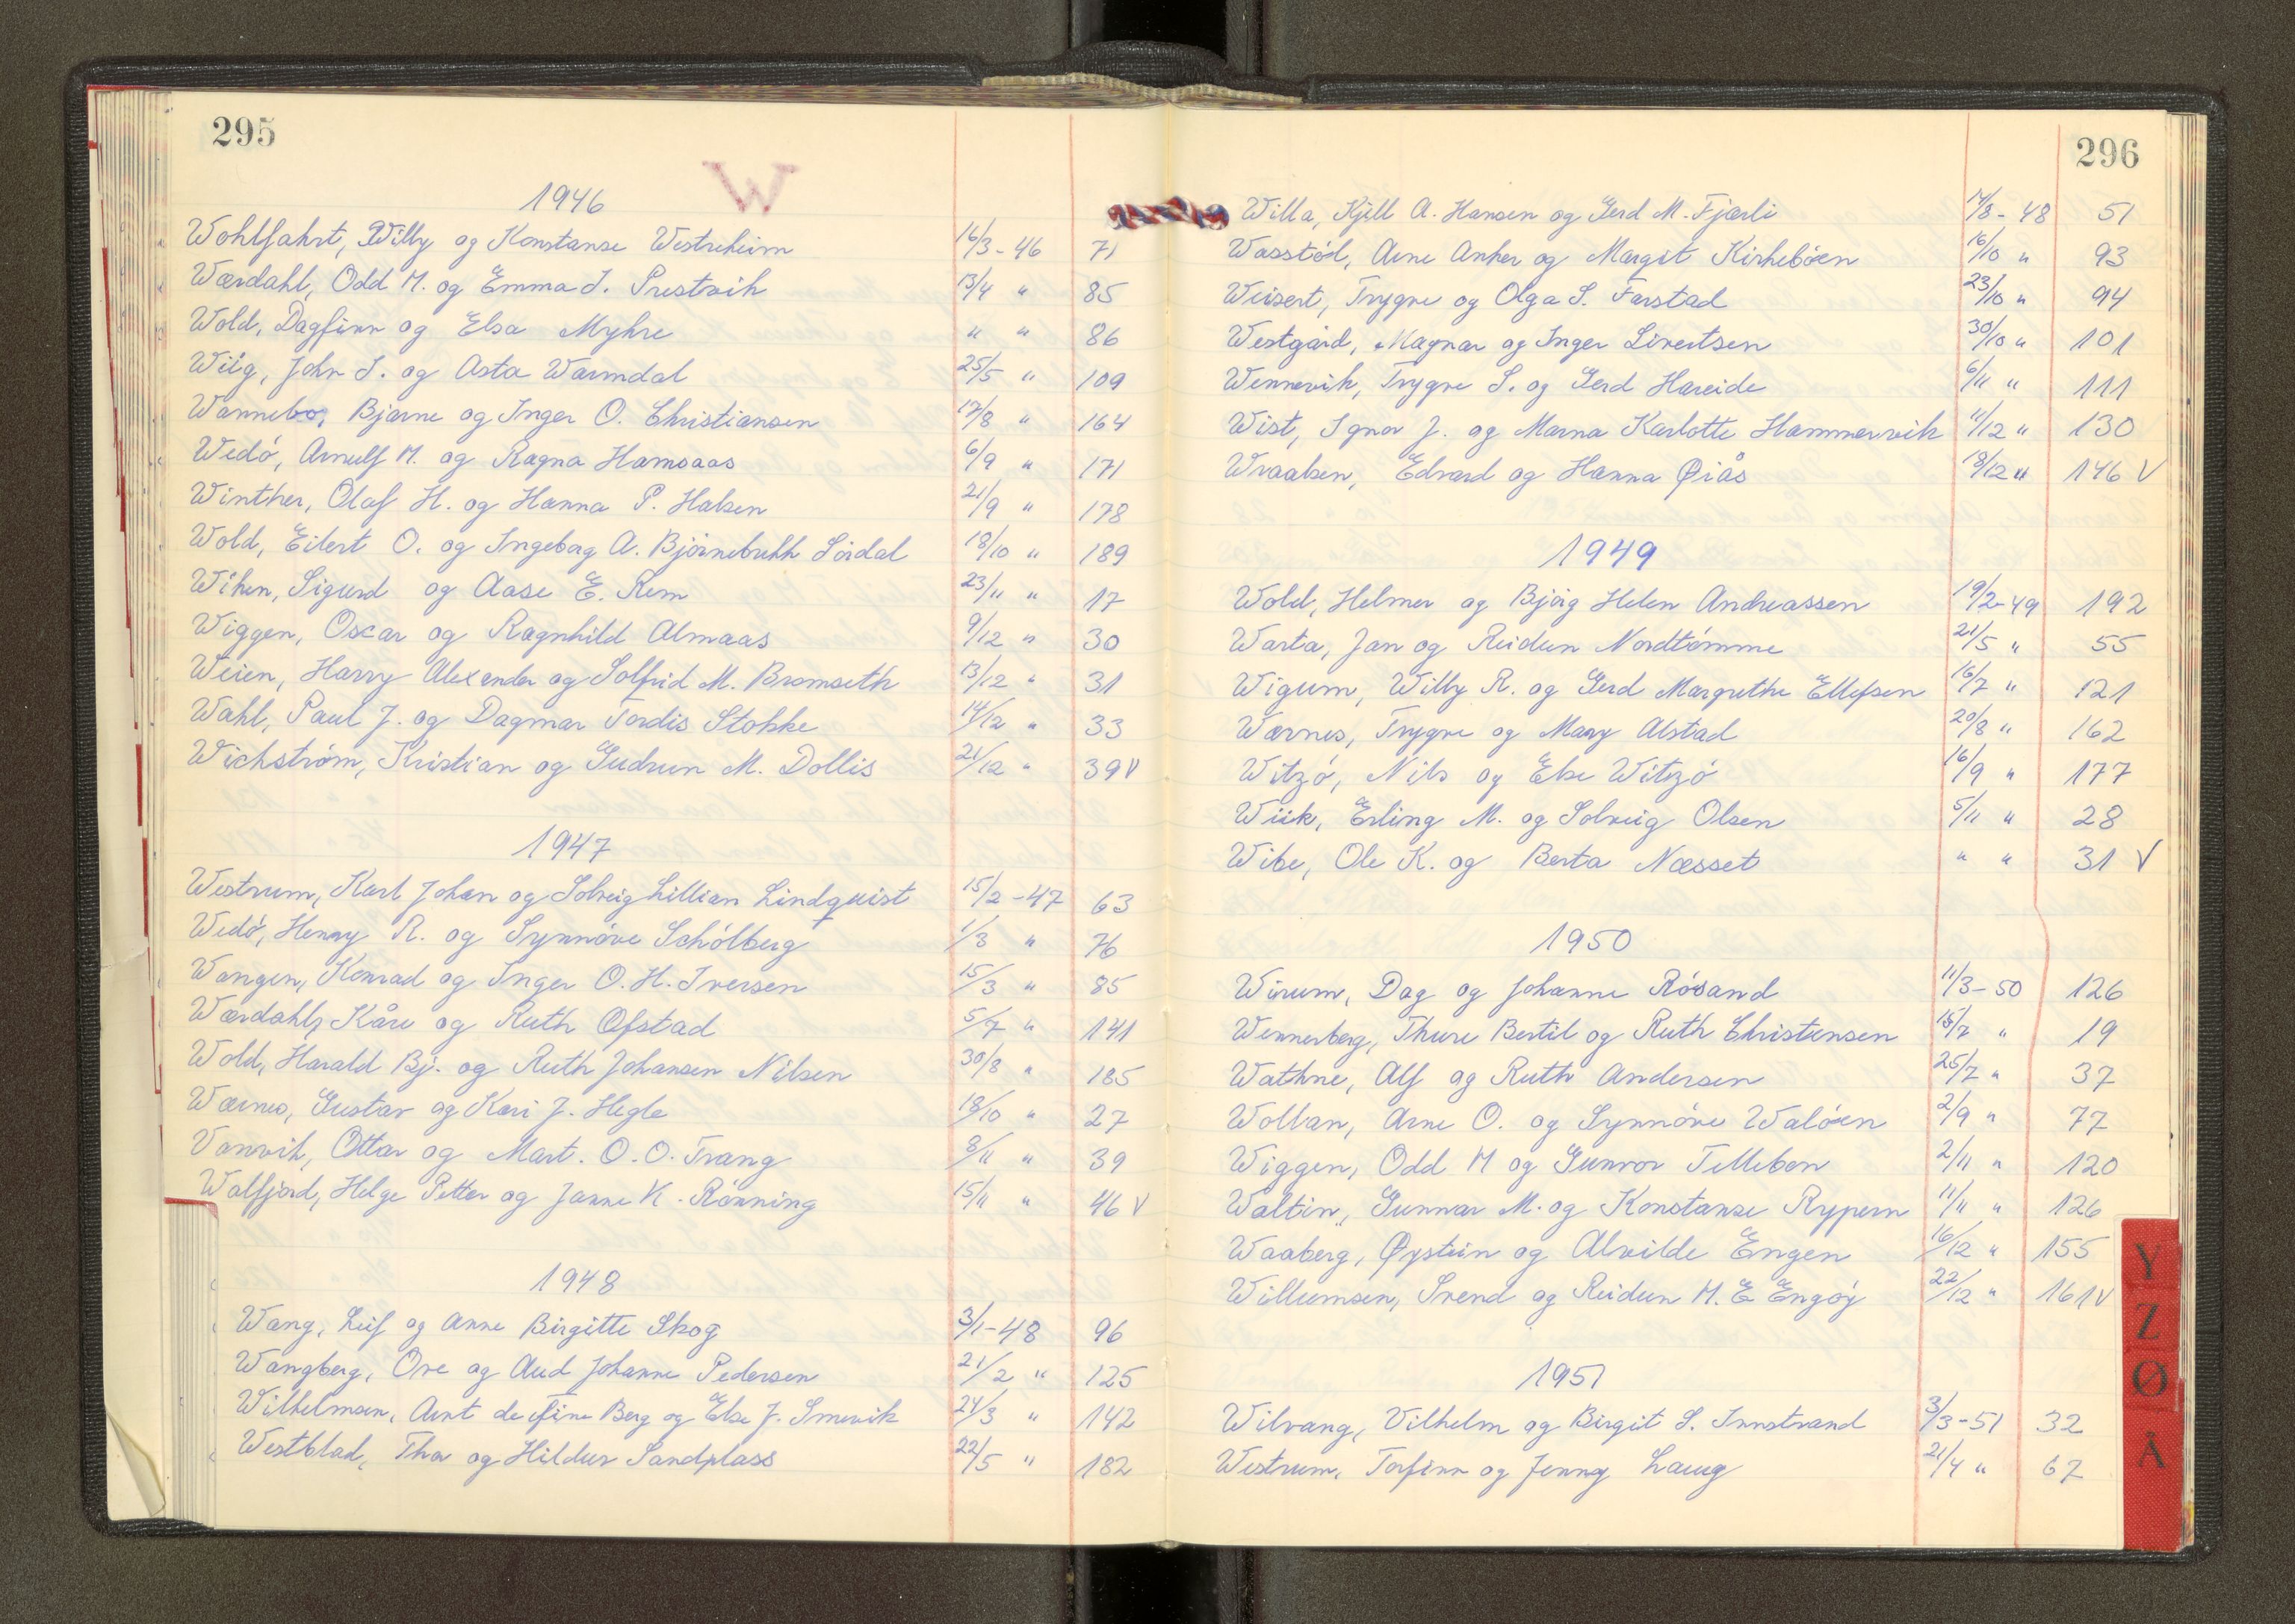 295
W
1946
Wohlfahrt, Willy og Konstanse Westreheim 16/3-46 71
Wærdahl, Odd M. og Emma J. Prestvik 13/4 " 85
Wold, Dagfinn og Elsa Myhre " " 86
Wiig, John S. og Asta Warmdal 25/5 " 109
Wannebo, Bjarne og Inger O. Christiansen 17/8 " 164
Wedö, Arnulf M. og Ragna Hamsaas 6/9 " 171
Winther, Olaf H. og Hanna P. Halsen 21/9 " 178
Wold, Eilert O. og Ingeborg A. Björnebekk Lördal 18/10 " 189
Wiken, Sigurd og Aase E. Rem 23/11 " 17
Wiggen, Oscar og Ragnhild Almaas 9/12 " 30
Weien, Harry Alexander og Solfrid M. Bromseth 13/12 " 31
Wahl, Paul J. og Dagmar Tordis Stokke 14/12 " 33
Wichström, Kristian og Gudrun M. Dollis 21/12 " 39 V
1947
Westrum, Karl Johan og Solveig Lillian Lindquist 15/2-47 63
Wedö, Henry R. og Synnöve Schölberg 1/3 " 76
Wangen, Konrad og Inger O. H. Iversen 15/3 " 85
Wærdahl, Kåre og Ruth Ofstad 5/7 " 141
Wold, Harald Bj. og Ruth Johansen Nilsen 30/8 " 185
Wærnes, Gustav og Kari J. Hegle 18/10 " 27
Vanvik, Ottar og Mart. O. O. Trang 8/11 " 39
Walfjord, Helge Petter og Janne K. Rönning 15/11 " 46 V
1948
Wang, Leif og Anne Birgitte Skog 3/1-48 96
Wangberg, Ove og Aud Johanne Pedersen 21/2 " 125
Wilhelmsen, Arnt de Fine Berg og Else J. Smevik 24/3 " 142
Westblad, Thor og Hildur Sandplass 22/5 " 182
296
Willa, Kjell A. Hansen og Gerd M. Fjærli 14/8-48 51
Wasstöd, Arne Anker og Margit Kirkeböen 16/10 " 93
Weisert, Trygve og Olga S. Farstad 23/10 " 94
Westgård, Magnar og Inger Sivertsen 30/10 " 101
Wennevik, Trygve S. og Gerd Hareide 6/11 " 111
Wist, Ignar J. og Marna Karlotte Hammervik 11/12 " 130
Wraalsen, Edvard og Hanna Øiås 18/12 " 146 V
1949
Wold, Helmer og Bjørg Helen Andreassen 19/2-49 192
Warta, Jan og Reidun Nordtömme 21/5 " 55
Wigum, Willy R. og Gerd Margrethe Ellefsen 16/7 " 121
Wærnes, Trygve og Mary Alstad 20/8 " 162
Witzö, Nils og Else Witzö 16/9 " 177
Wiik, Erling M. og Solveig Olsen 5/11 " 28
Wibe, Ole K. og Berta Næsset " " 31 V
1950
Wirum, Dag og Johanne Rösand 11/3-50 126
Wennerberg, Thure Bertil og Ruth Christensen 15/7 " 19
Wathne, Alf og Ruth Andersen 25/7 " 37
Wollan, Arne O. og Synnöve Walöen 2/9 " 77
Wiggen, Odd M og Gunvor Tellebon 2/11 " 120
Waltin, Gunnar M. og Konstanse Rypern 11/11 " 126
Waaberg, Øystein og Alvilde Engen 16/12 " 155
Willumsen, Svend og Reidun M. E Engöy 22/12 " 161 V
1951
Wilvang, Vilhelm og Birgit S. Innstrand 3/3-51 32
Westrum, Torfinn og Jenny Laug 21/4 " 67
Y
Z
Ø
Å